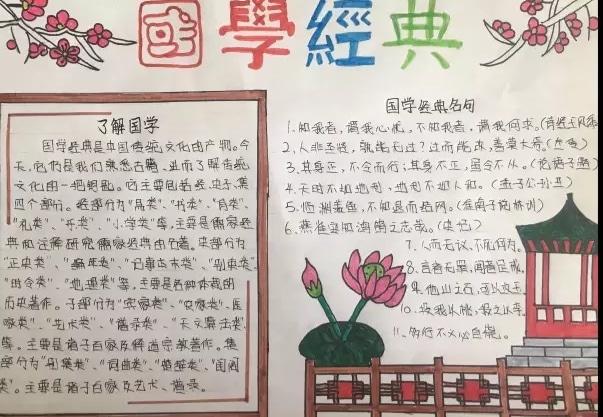 國學經典
了解国学
国学经典是中国传统文化的产物。今
天，它仍是我们熟悉古籍、进而了解传统
文化的一把钥匙。它主要包括经、史、子、集
四个部分。经部分为"易类"、"书类"、
"礼类"、"乐类"、"小学类"等，主要是儒家经
典和注解研究儒家经典的名著。史部分为
"正史类"、"编年类"、"纪事本末类"、"别史类"、
"时令类"、"地理类"等，主要是各种体裁的
历史著作。子部分为"儒家类"、"农家类"、"医
家类"、"艺术类"、"谱录类"、"天文算法类"、
等。主要是诸子百家及释道宗教著作。集
部分为"别集类"、"词曲类"、"楚辞类"、
类"。主要是诸子百家及艺术、谱录。
国学经典名句
1、知我者，谓我心忧，不知我者，谓我何求。(诗经王风
2、人非圣贤，孰能无过？过而能改，善莫大焉。(左传)
3、其身正，不令而行；其身不正，虽令不从。(论语子路)
4、天时不如地利，地利不如人和。(孟子公孙丑)
5、临渊羡鱼，不如退而结网。(淮南子说林训)
6、燕雀安知鸿鹄之志哉。(史记)
7、人而无仪，不死何为。
8、言者无罪，闻者足戒。
9、他山之石，可以攻玉。
10、投我以桃，报之以李。
11、多行不义必自毙。